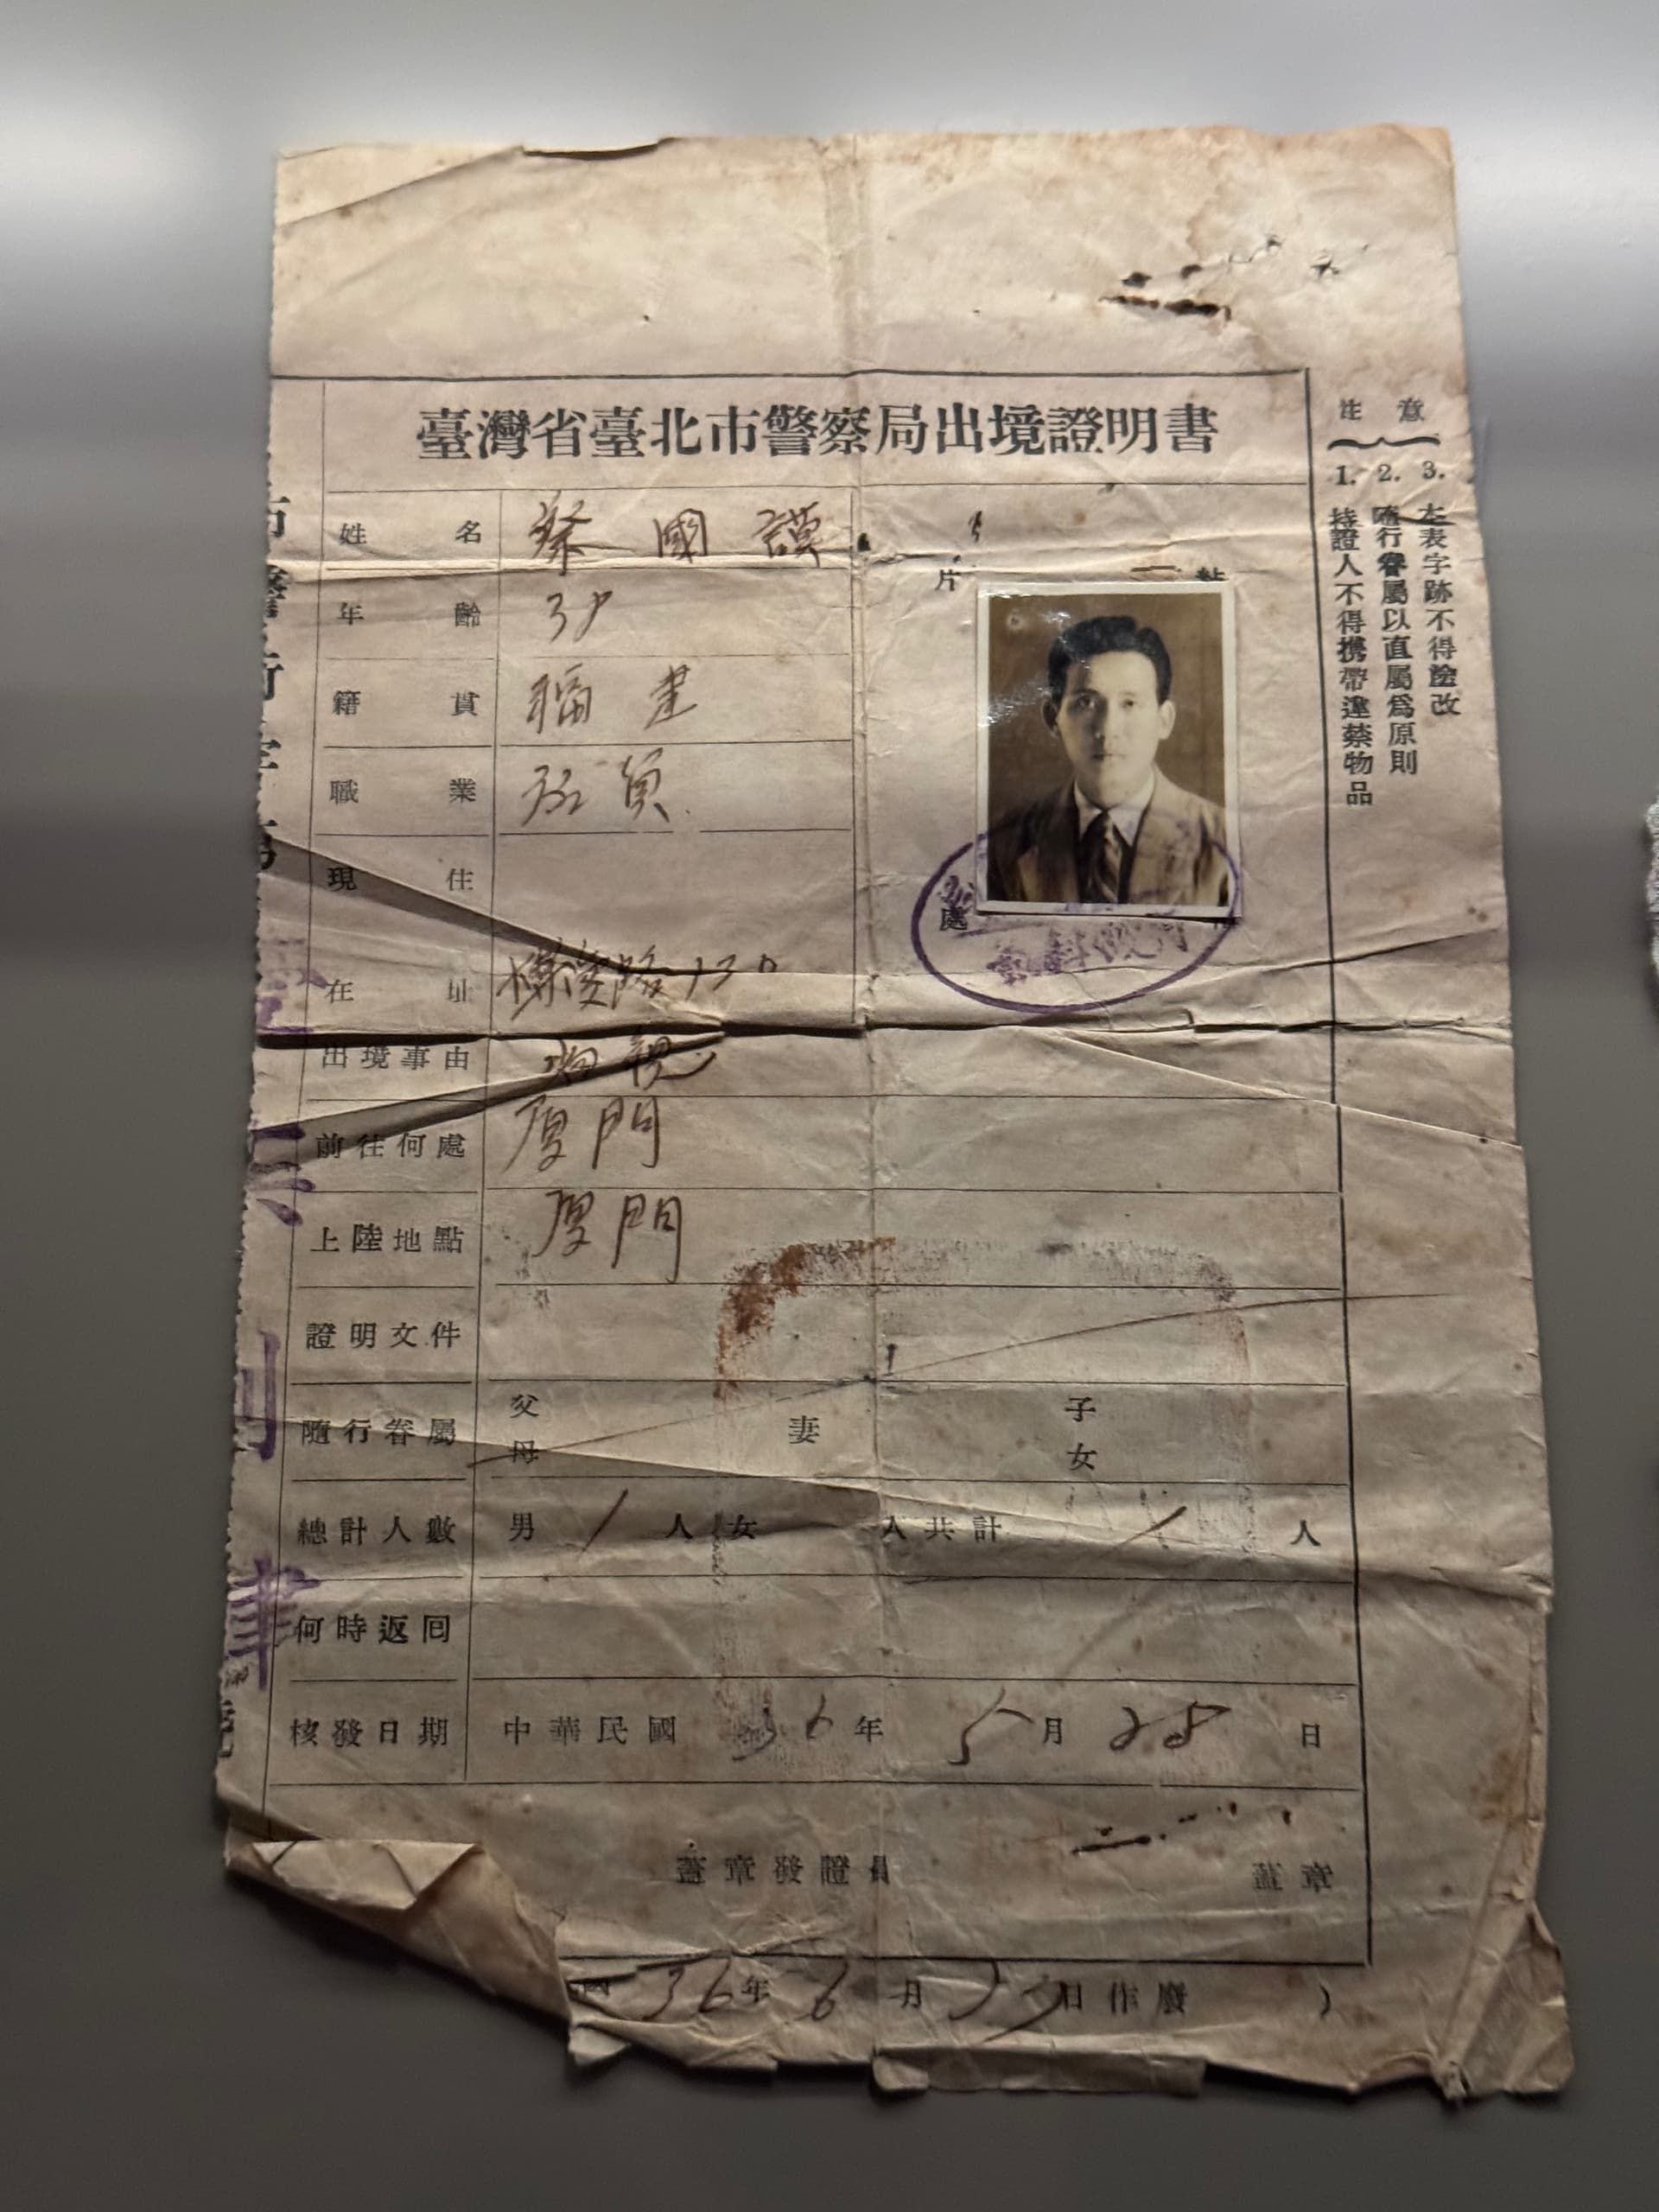 臺灣省臺北市警察局出境證明書
姓名 蔡國謨
年齡 38
籍貫 福建
職業
現住
在址 130
出境事由
前往何處 厦門
上陸地點 厦門
證明文件
隨行眷屬 父母 妻 子女
總計人數 男 1 人 女 人共計 1 人
何時返囘
核發日期 中華民國 36 年 5 月 28 日
蓋章發證員 蓋章
國 36 年 6 月 日作廢 )
片
處
注意
1. 持證人不得携帶違禁物品
2. 隨行眷屬以直屬爲原則
3. 左表字跡不得塗改